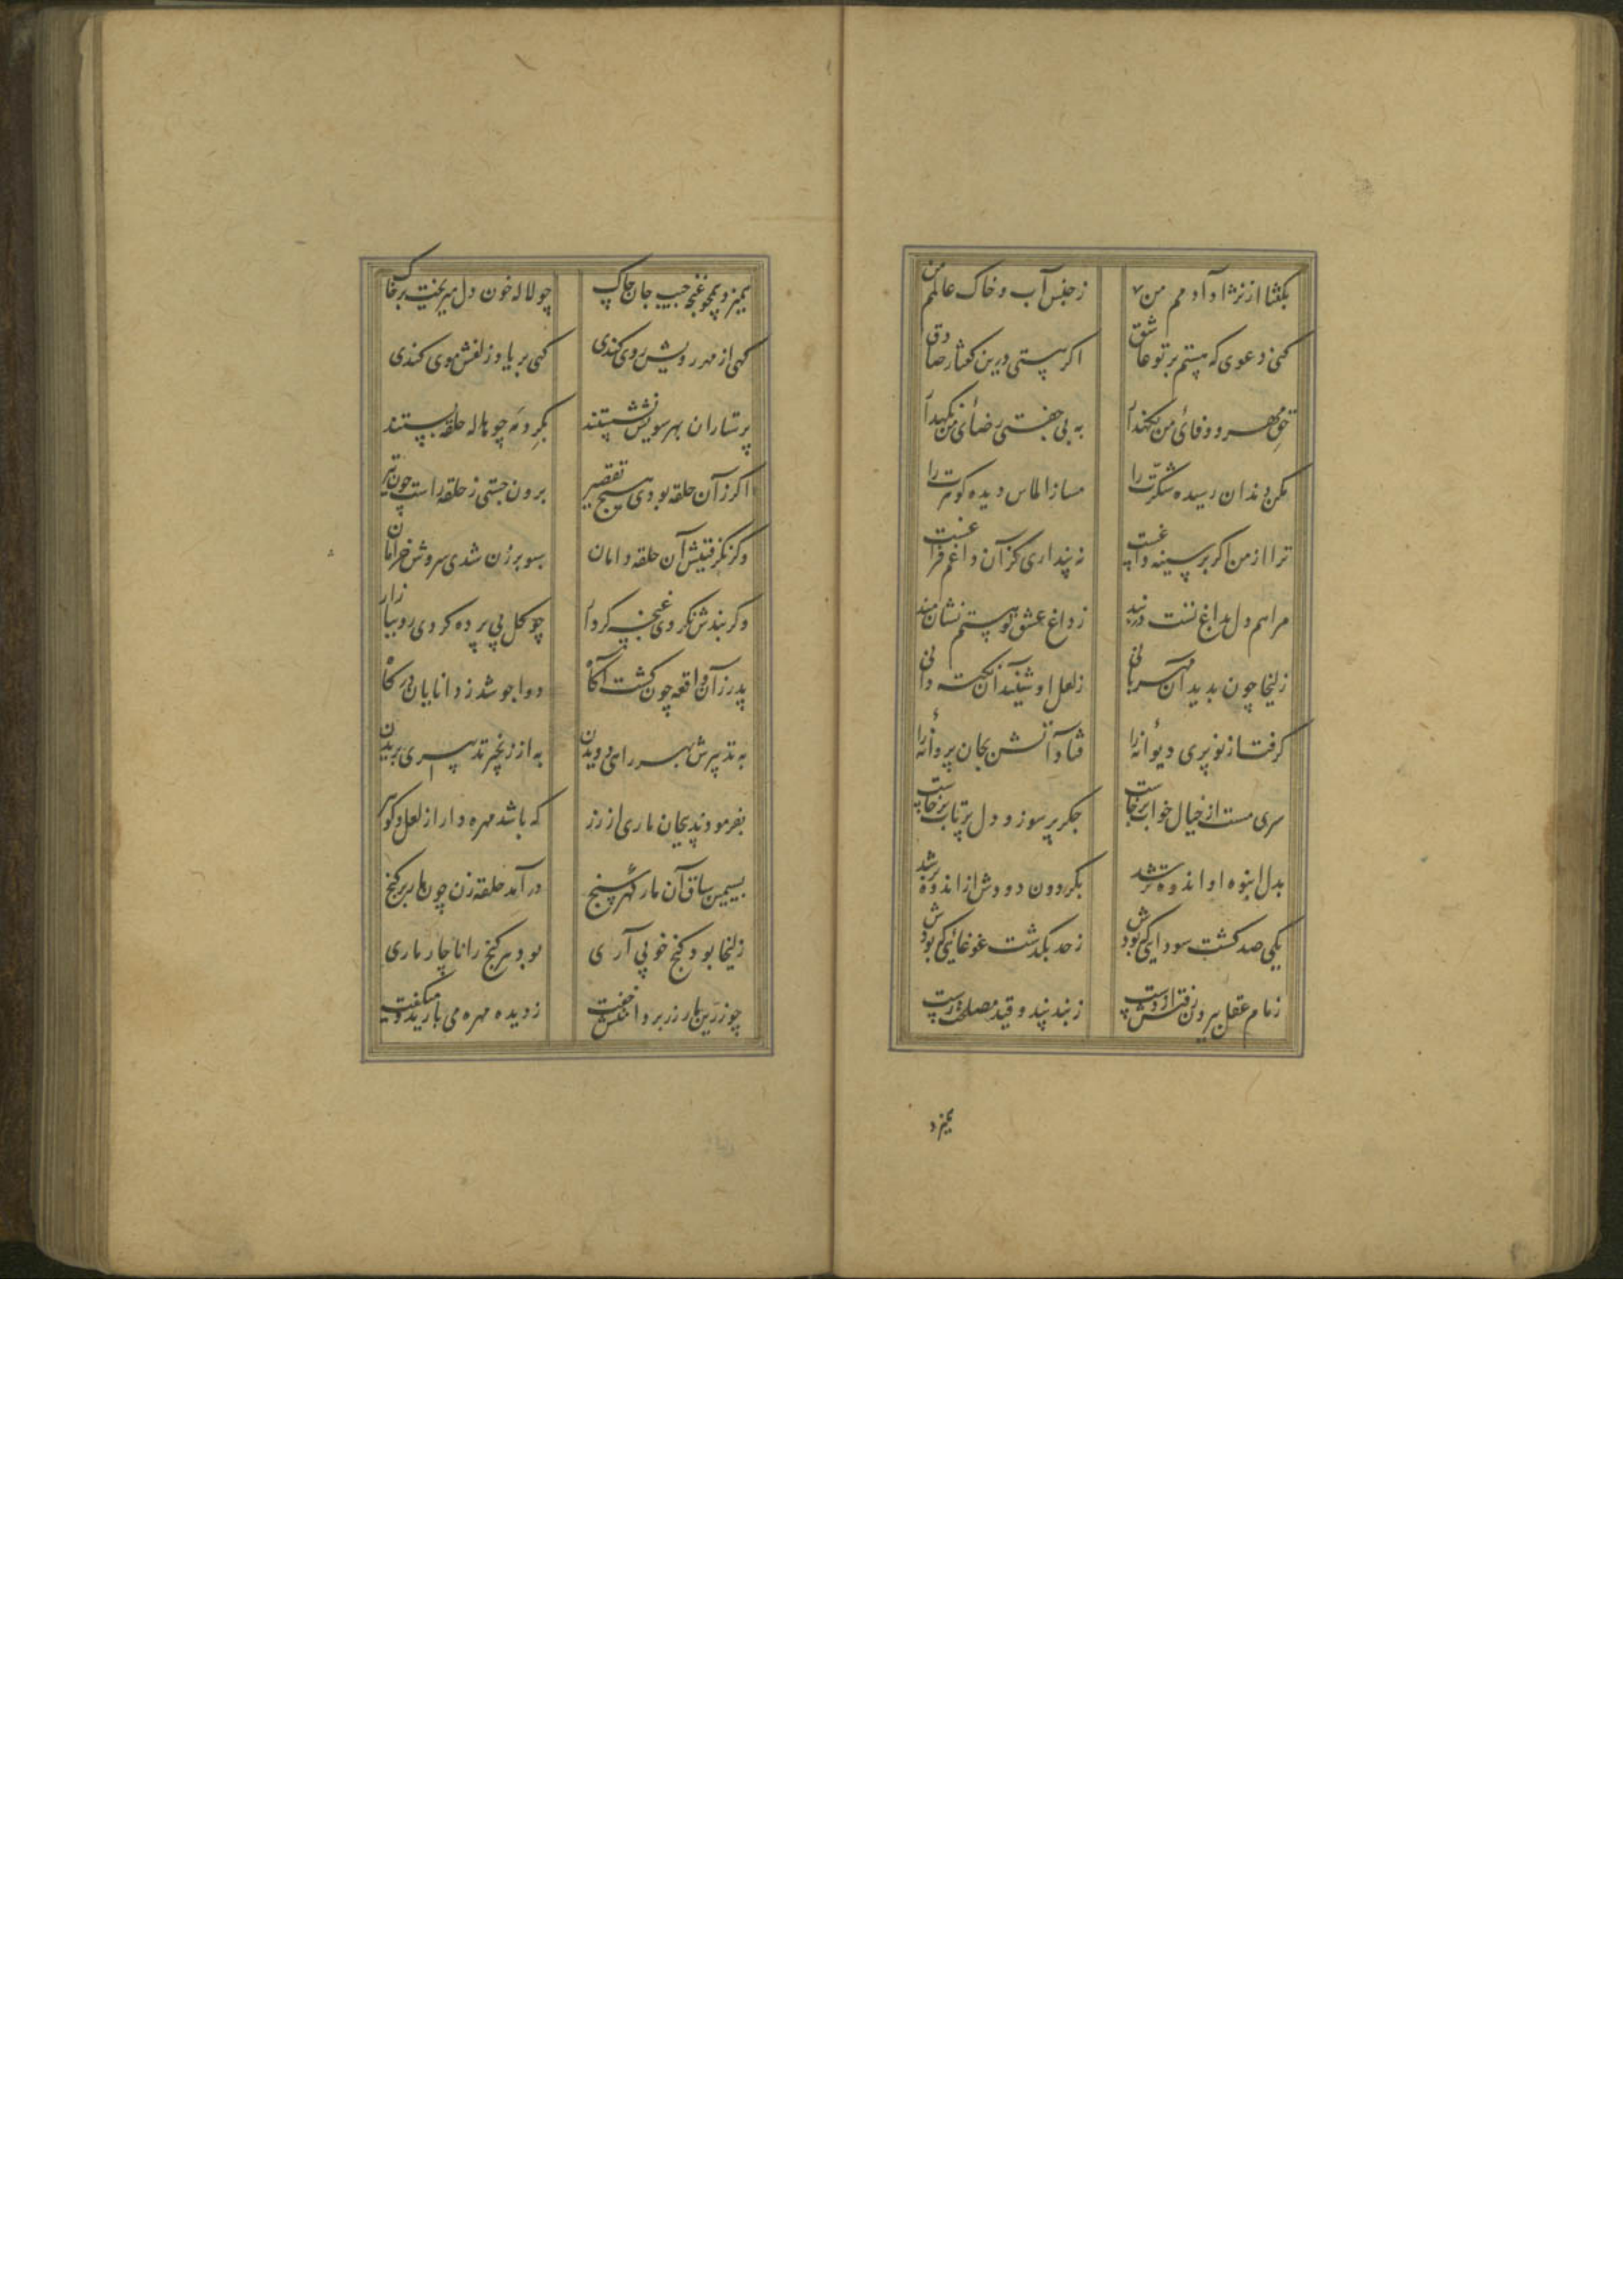 بگفتا از نژاد آدمم من ز جنس آب و خاک عالمم من
کنی دعوی که هستم بر تو عاشق اگر هستی درین گفتار صادق
حق مهر و وفای من نگهدار به بی جفتی رضای من نگهدار
مکن دندان رسیده شکرت را مساز الماس دیده گوهرت را
ترا از من اگر بر سینه داغست نه پنداری کز آن داغم فراغست
مرا هم دل بداغ تست در بند ز داغ عشق تو هستم نشانمند
زلیخا چون بدید آن مهربانی ز لعل او شنید آن نکته دانی
گرفت از نو پری دیوانه را فتاد آتش بجان پروانه را
سری مست از خیال خواب برخاست جگر پر سوز و دل پر تاب برخاست
بدل انبوه او اندوه تر شد بگردون دودش از اندوه بر شد
یکی صد گشت سودایی که بودش ز حد بگذشت غوغایی که بودش
زمام عقل بیرون رفتش از دست ز بند پند و قید مصلحت رست
همیزد
همیزد همچو غنچه جیب جان چاک چو لاله خون دل میریخت بر خاک
گهی از مهر رویش روی کندی گهی بر یاد زلفش موی کندی
پرستاران بهر سویش نشستند بگرد مه چو هاله حلقه بستند
اگر زان حلقه بودی هیچ تقصیر برون جستی ز حلقه راست چون تیر
وگر نگرفتیش آن حلقه دامان بسوی برزن شدی سروش خرامان
وگر بندش نکردی غنچه کردار چو گل بی پرده کردی رو ببازار
پدر زان واقعه چون گشت آگاه دوا جو شد ز دانایان درگاه
به تدبیرش بهر رای دویدن به از زنجیر تدبیری ندیدن
بفرمودند پیچان ماری از زر که باشد مهره دار از لعل و گوهر
بسیمین ساق آن مار گهرسنج در آمد حلقه زن چون مار بر گنج
زلیخا بود گنج خوبی آری بود هر گنج را ناچار ماری
چو زرین مار زیر دامنش خفت ز دیده مهره می بارید و میگفت